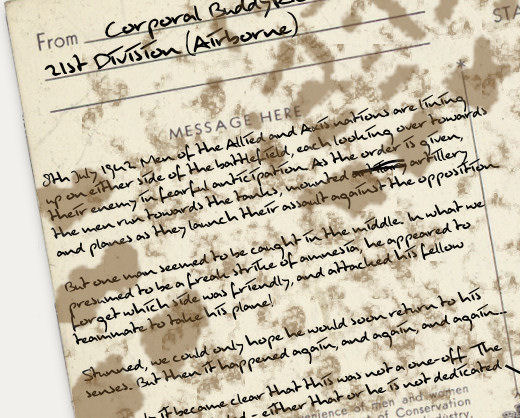 From Corporal Buddy
21st Division (Airborne)
STA
MESSAGE HERE
8th July 1942. Men of the Allied and Axis nations are lining
up on either side of the battlefield, each looking over towards
their enemy in fearful anticipation. As the order is given,
the men run towards the tanks, mounted artillery
and planes as they launch their assault against the opposition.
But one man seemed to be caught in the middle. In what we
presumed to be a freak strike of amnesia, he appeared to
forget which side was friendly, and attacked his fellow
teammate to take his plane!
Stunned, we could only hope he would soon return to his
senses. But then it happened again, and again, and again...
it became clear that this was not a one-off. The
either that or he is not dedicated
of men and women
of Conservation